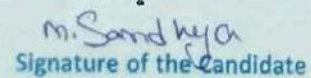 M. Sandhya
Signature of the Candidate